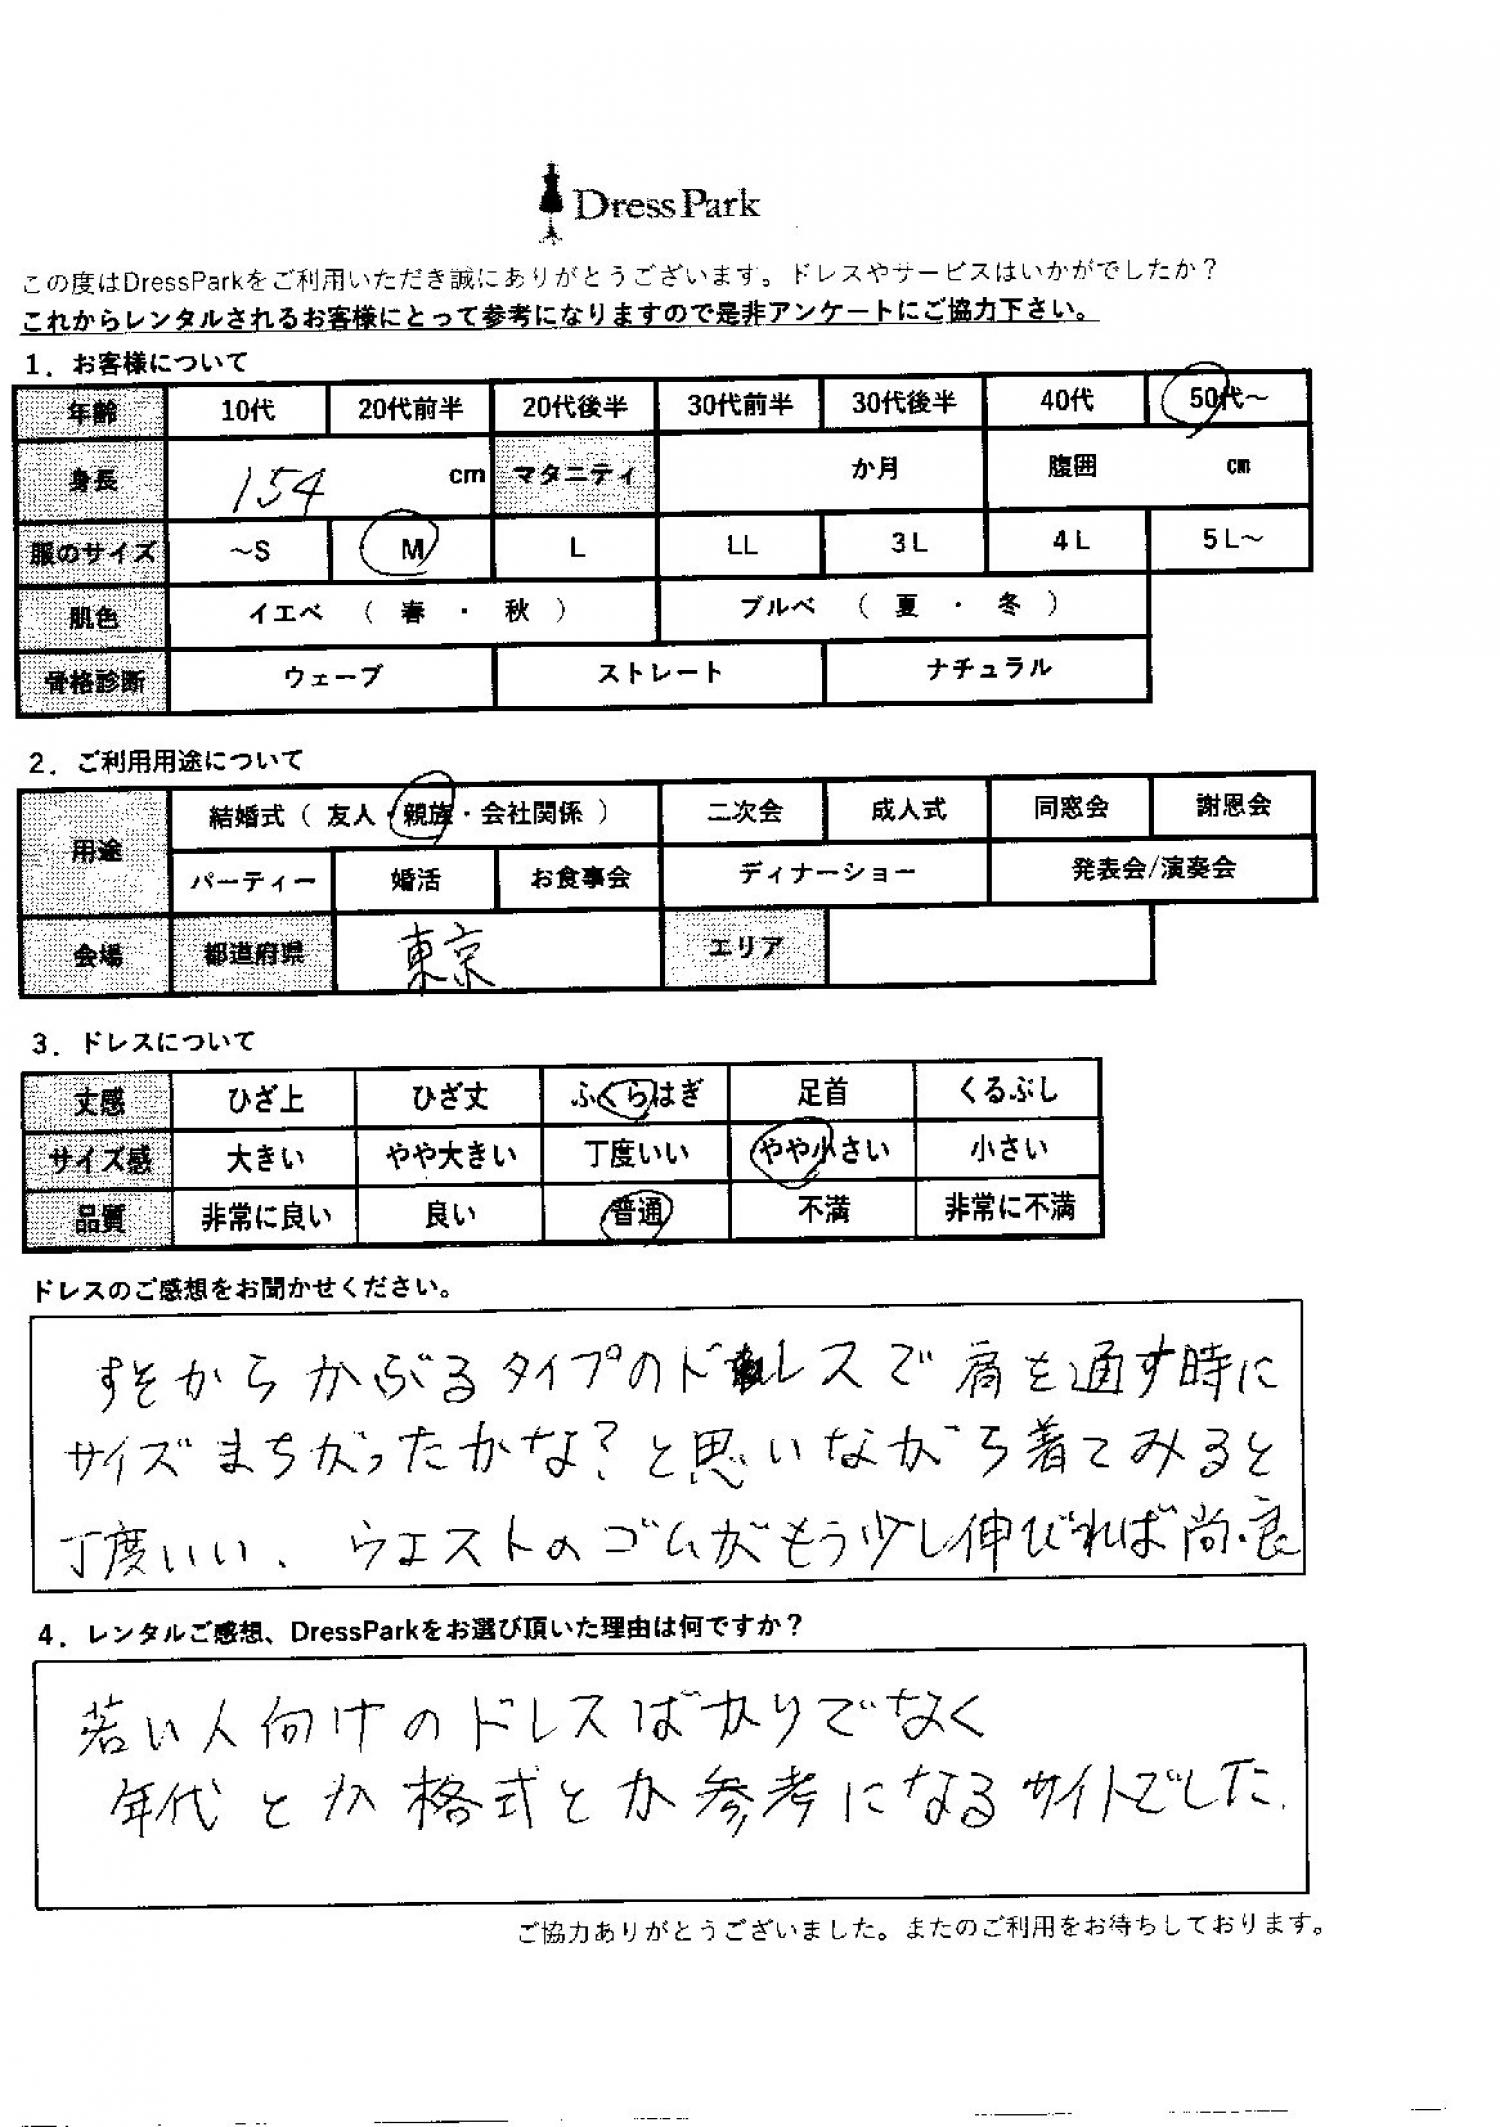 DressPark
この度はDressParkをご利用いただき誠にありがとうございます。ドレスやサービスはいかがでしたか？
これからレンタルされるお客様にとって参考になりますので是非アンケートにご協力下さい。
1．お客様について
年齢 10代 20代前半 20代後半 30代前半 30代後半 40代 50代～
身長 154 cm マタニティ か月 腹囲 cm
服のサイズ ～S M L LL 3L 4L 5L～
肌色 イエベ （ 春 ・ 秋 ） ブルベ （ 夏 ・ 冬 ）
骨格診断 ウェーブ ストレート ナチュラル
2．ご利用用途について
用途 結婚式（ 友人・親族・会社関係 ） 二次会 成人式 同窓会 謝恩会
パーティー 婚活 お食事会 ディナーショー 発表会/演奏会
会場 都道府県 東京 エリア
3．ドレスについて
丈感 ひざ上 ひざ丈 ふくらはぎ 足首 くるぶし
サイズ感 大きい やや大きい 丁度いい やや小さい 小さい
品質 非常に良い 良い 普通 不満 非常に不満
ドレスのご感想をお聞かせください。
すそからかぶるタイプのドレスで肩を通す時に
サイズまちがったかな？と思いながら着てみると
丁度いい、ウエストのゴムがもう少し伸びれば尚・良
4．レンタルご感想、DressParkをお選び頂いた理由は何ですか？
若い人向けのドレスばかりでなく
年代とか格式とか参考になるサイトでした.
ご協力ありがとうございました。またのご利用をお待ちしております。